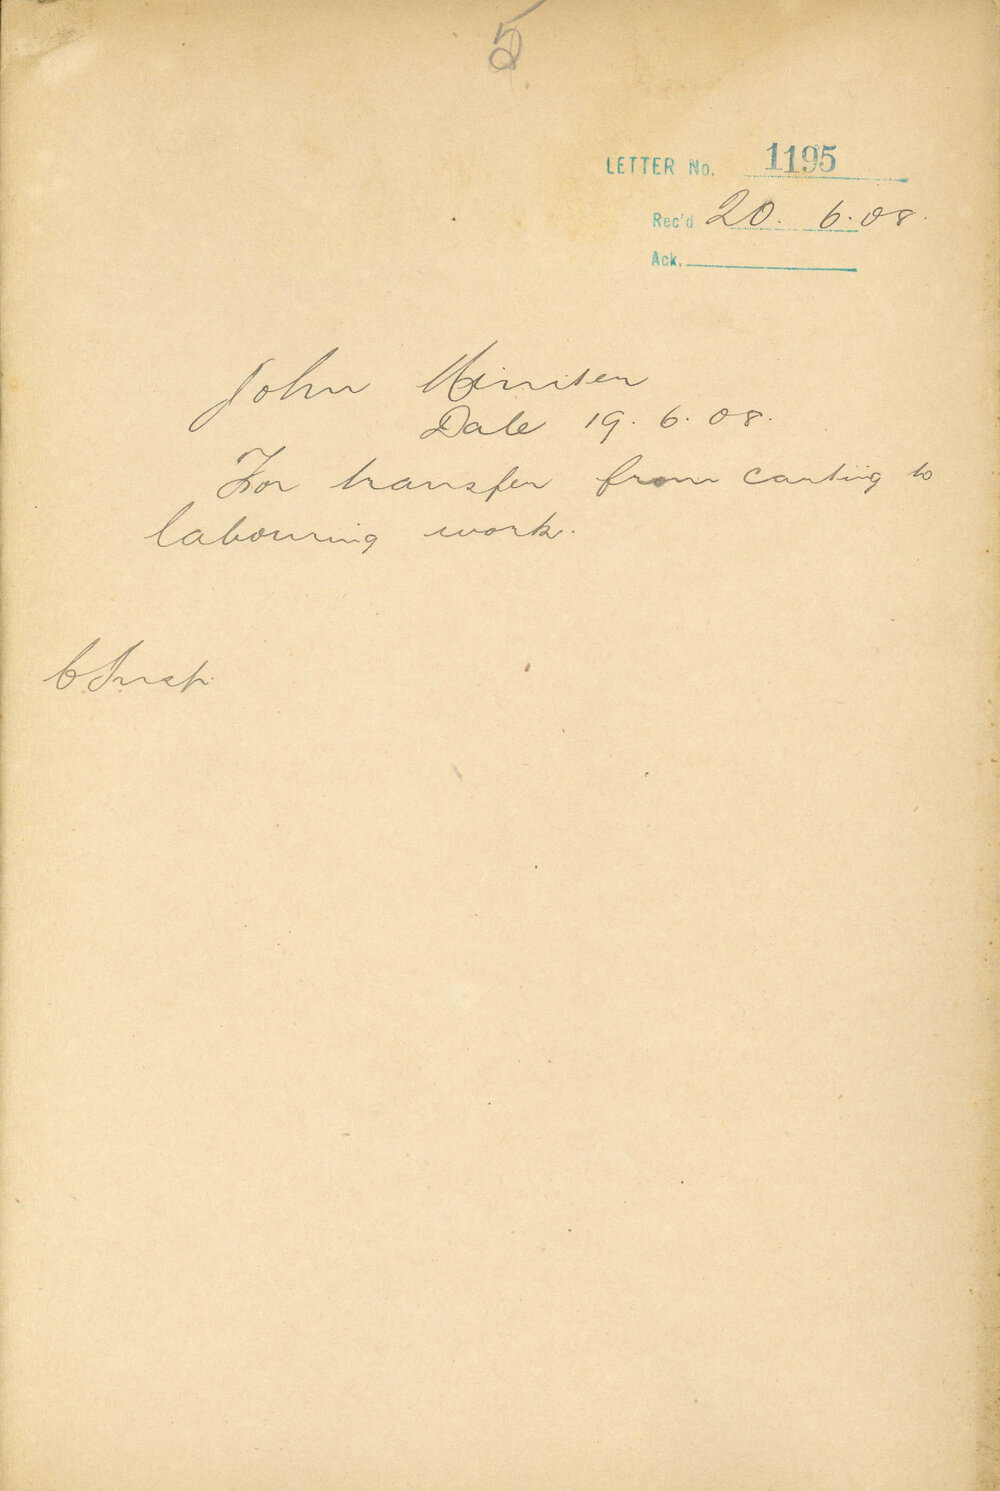 5
LETTER No. 1195
Rec'd 20. 6. 08.
Ack.
John
Date 19. 6. 08.
For transfer from carting to
labouring work.
C Insp.